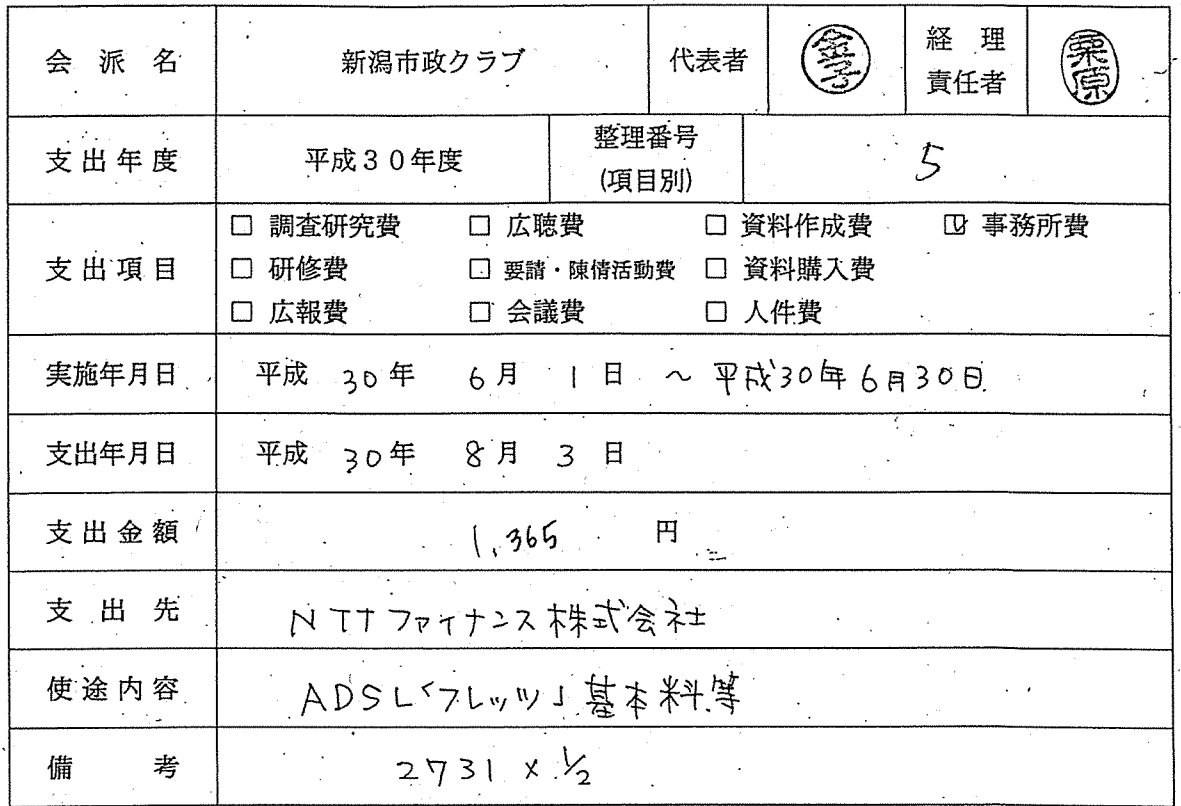 会派名 新潟市政クラブ 代表者 金子 経理責任者 栗原
支出年度 平成30年度 整理番号(項目別) 5
支出項目
□ 調査研究費 □ 広聴費 □ 資料作成費 ☑ 事務所費
□ 研修費 □ 要請・陳情活動費 □ 資料購入費
□ 広報費 □ 会議費 □ 人件費
実施年月日 平成 30年 6月 1日 ~ 平成30年6月30日
支出年月日 平成 30年 8月 3日
支出金額 1,365 円
支出先 NTTファイナンス株式会社
使途内容 ADSL「フレッツ」基本料等
備考 2731 × 1/2